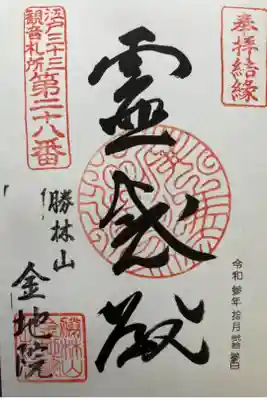 奉拝結縁
霊感殿
江戸三十三
観音札所
第二十八番
勝林山
金地院
令和参年拾月